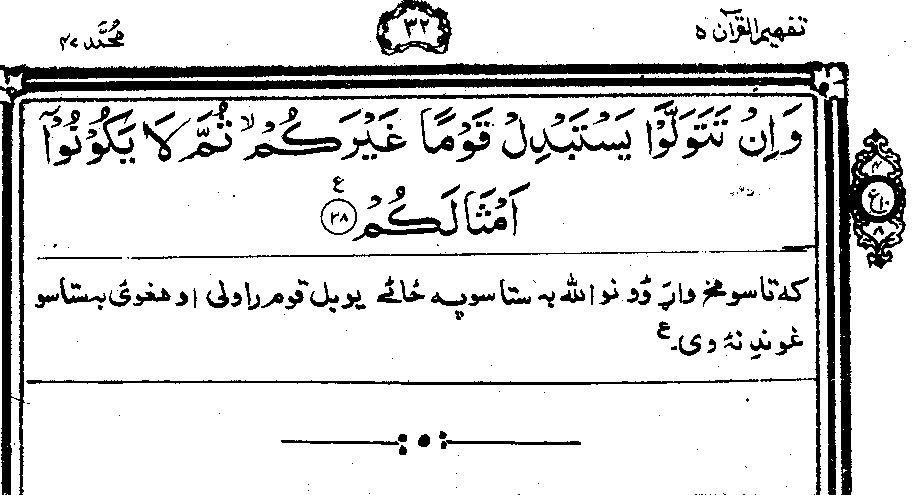 تفهيم القرآن ۵
۳۲
محمّد ۴۷
وَاِنْ تَتَوَلَّوْا يَسْتَبْدِلْ قَوْمًا غَيْرَكُمْ ۙ ثُمَّ لَا يَكُوْنُوْٓا
اَمْثَالَكُمْ ۝۳۸ ع
که تاسو مخ واړوو نو الله به ستاسو په ځائے يو بل قوم راولی او هغوئ به ستاسو
غوندِ نۀ وی۔ ع
۴
ع
۱۰
۸